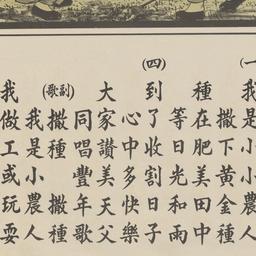 (一)我是小小農人
撒下黃金種
種在肥美田中
等日光和雨
(四)到了收割日子
心中多快樂
大家讚美天父
同唱豐年歌
(副歌)撒種 撒種
我是小農人
我做工或玩耍